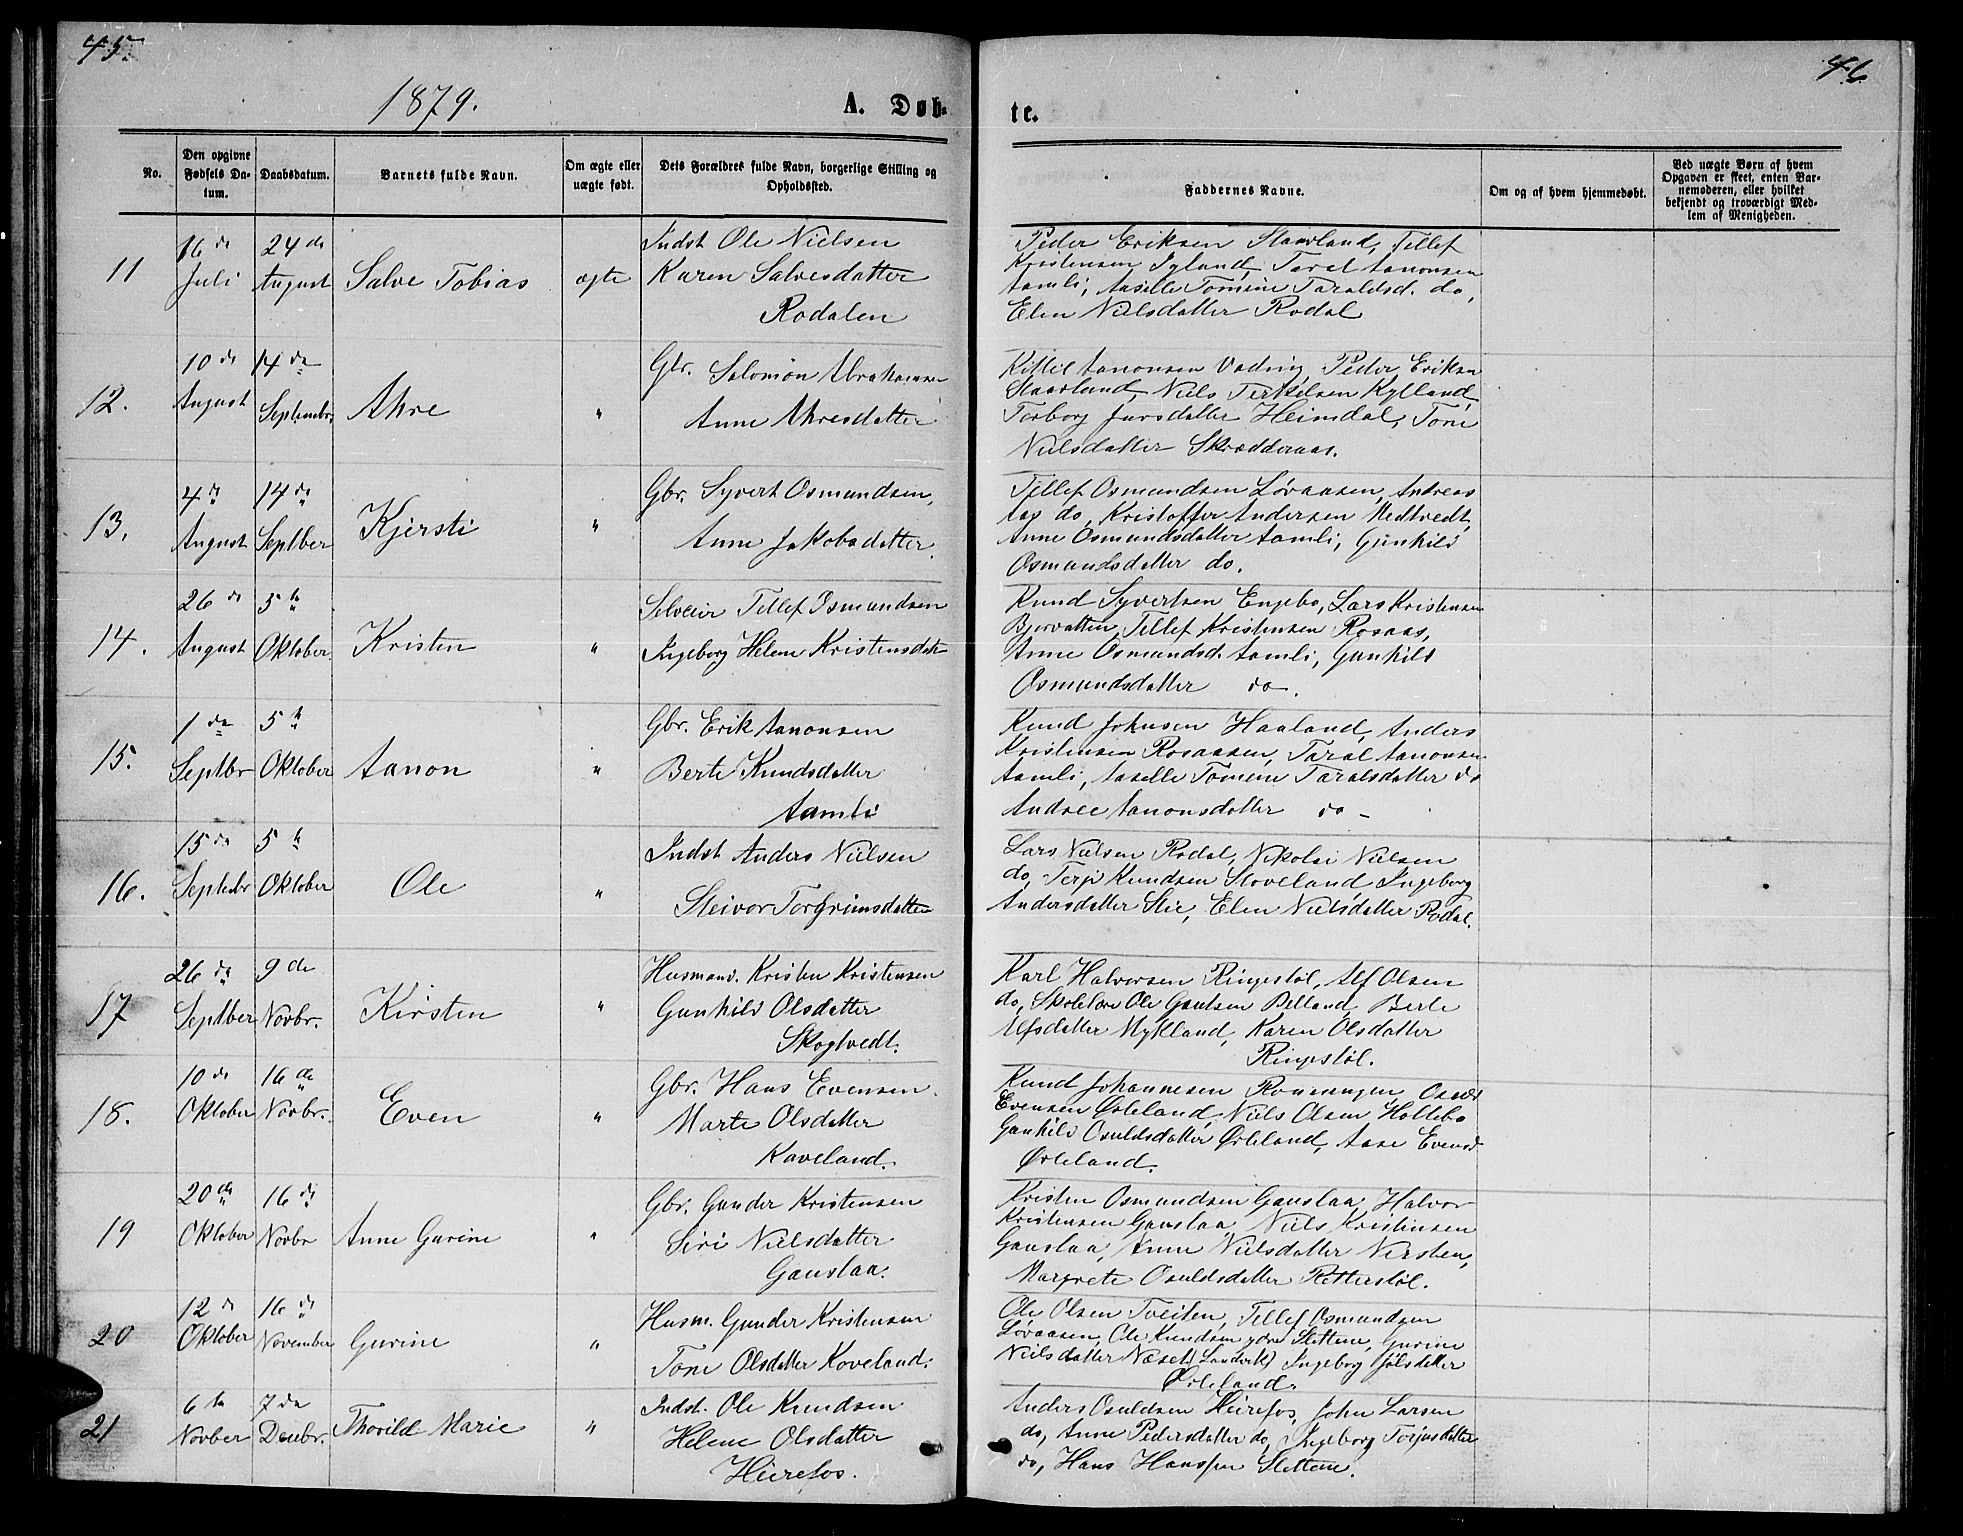 45.
46
1879.
A. Døb-
te.
No.
Den opgivne Fødsels Da-tum.
Daabsdatum.
Barnets fulde Navn.
Om ægte eller uægte født.
Dets Forældres fulde Navn, borgerlige Stilling og Opholdssted.
Faddernes Navne.
Om og af hvem hjemmedøbt.
Ved uægte Børn af hvem Opgaven er skeet, enten Bar-nemoderen, eller hvilket bekjendt og troværdigt Med-lem af Menigheden.
11
16 de Juli
24 de August
Salve Tobias
ægte
Indst Ole Nielsen
Karen Salvesdatter
Rodalen
Peder Eriksen Staarland, Tellef
Kristensen Igland, Taral Aanonsen
Aamli, Aaselle Tomine Taraldsd. do,
Elen Nielsdatter Rodal
12.
10 de August
14 de Septembr.
Ahre
"
Gbr. Salomon Abrahamsen
Anne Ahresdatter
Kittil Aanonsen Vading, Peder Eriksen
Staarland, Niels Terkelsen Kylland
Torborg Jursdatter Heimdal, Tone
Nielsdatter Skrædderaas.
13.
4 de August
14 de Septber
Kjersti
"
Gbr. Syvert Osmundsen,
Anne Jakobsdatter.
Tellef Osmundsen Løvaasen, Andreas
Aas do, Kristoffer Andersen Nedtvedt,
Anne Osmundsdatter Aamli, Gunhild
Osmundsdatter do.
14.
26 de August
5 te Oktober.
Kristen
"
Selveier Tellef Osmundsen
Ingeborg Helene Kristensdatr
Knud Syvertsen Engebo, Lars Kristensen
Bjorvatten, Tellef Kristensen Rosaas,
Anne Osmundsd. Aamli, Gunhild
Osmundsdatter do.
15.
1 de Septbr
5 te Oktober
Aanon
"
Gbr. Erik Aanonsen
Berte Knudsdatter
Aamli
Knud Johnsen Haaland, Anders
Kristensen Rosaasen, Taral Aanonsen
Aamli, Aaselle Tomine Taralsdatter do
Andree Aanonsdatter do -
16.
15 de Septebr
5 te Oktober
Ole
"
Indst Anders Nielsen
Steivor Torgrimsdatter
Lars Nielsen Rodal, Nikolai Nielsen
do, Terje Knudsen Stoveland, Ingeborg
Andersdatter Stie, Elen Nielsdatter Rodal.
17
26 de Septber
9 de Novbr.
Kirsten
"
Husmand. Kristen Kristensen
Gunhild Olsdatter
Skogtvedt.
Karl Halvorsen Ringestøl, Alf Olsen
do, Skolelær Ole Gautsen Belland, Berte
Alfsdatter Mykland, Karen Olsdatter
Ringestøl.
18.
10 de Oktober
16 de Novbr.
Even
"
Gbr. Hans Evensen.
Marte Olsdatter
Kaveland.
Knud Johannesen Osuld
Evensen Ørleland, Niels Olsen Hollebo
Gunhild Osuldsdatter Ørleland, Aase Evensd
Ørleland.
19
20 de Oktober
16 de Novbr
Anne Gurine
"
Gbr. Gunder Kristensen
Siri Nielsdatter
Gauslaa.
Kristen Osmundsen Gauslaa, Halvor
Kristensen Gauslaa, Niels Kristensen
Gauslaa, Anne Nielsdatter Nersten,
Margrete Osuldsdatter Retterstøl.
20
12 de Oktober
16 de November
Gurine
"
Husm. Gunder Kristensen
Tone Olsdatter Koveland.
Ole Olsen Tveiten, Tellef Osmundsen
Løvaasen, Ole Knudsen ydre Slettene, Gurine
Nielsdatter Næset (Landvik) Ingeborg Jølsdatter
Ørleland.
21
6 te Novber
7 de Decbr.
Thovild Marie
"
Indst. Ole Knudsen
Helene Olsdatter
Heirefos.
Anders Osuldsen Heirefos, John Larsen
do, Anne Pedersdatter do, Ingeborg Torjusdatter
do, Hans Hanssen Slettene.